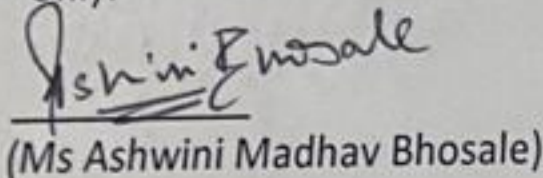 Ashwini Bhosale
(Ms Ashwini Madhav Bhosale)